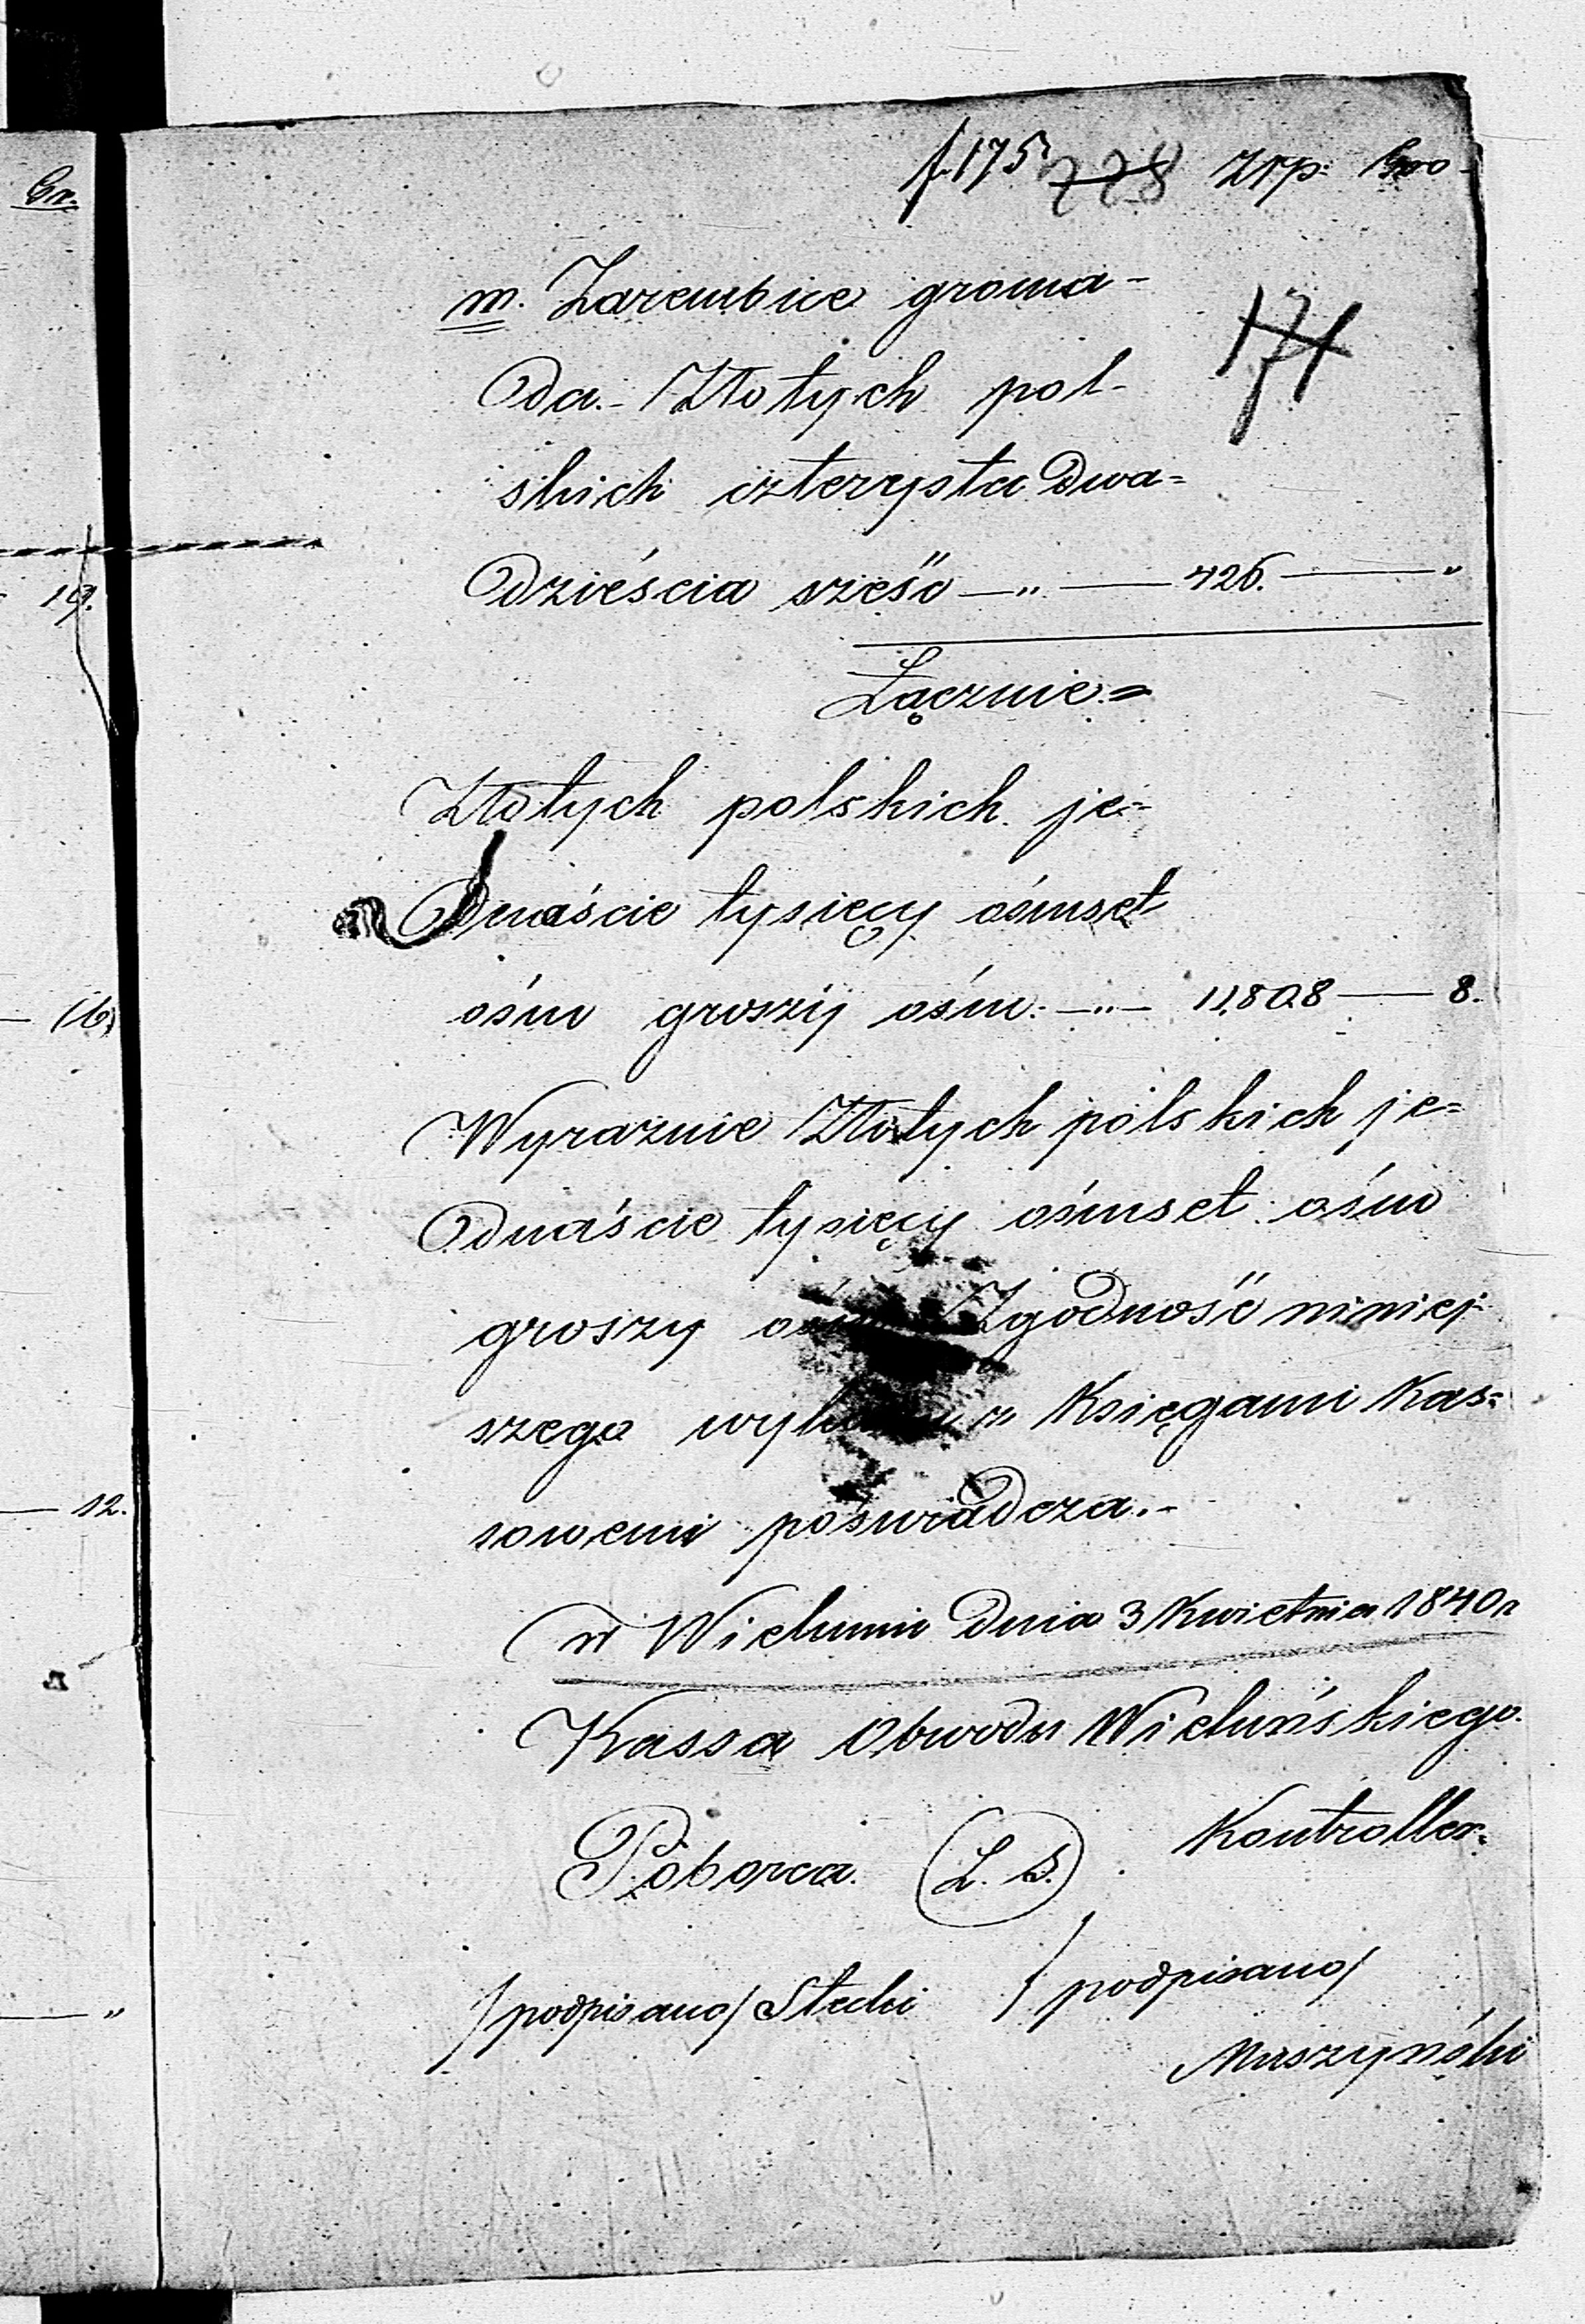 Gr.
19.
16.
12.
f. 175 228 Złp: Gro
m. Zarembice groma-
171
da.- Złotych pol-
skich czterysta dwa=
dzieścia sześć —„— 426. — „
Łącznie.=
Złotych polskich je=
dnaście tysięcy ośmset
ośm groszy ośm. —„— 11,808 — 8.
Wyraznie Złotych polskich je=
dnaście tysięcy ośmset ośm
groszy Zgodność niniej
szego z Księgami Kas=
sowemi poświadcza.-
w Wieluniu dnia 3 Kwietnia 1840 r
Kassa Obwodu Wieluńskiego.
Poborca. (L. S.) Kontroller.
/podpisano/ Stecki /podpisano/
Muszyński